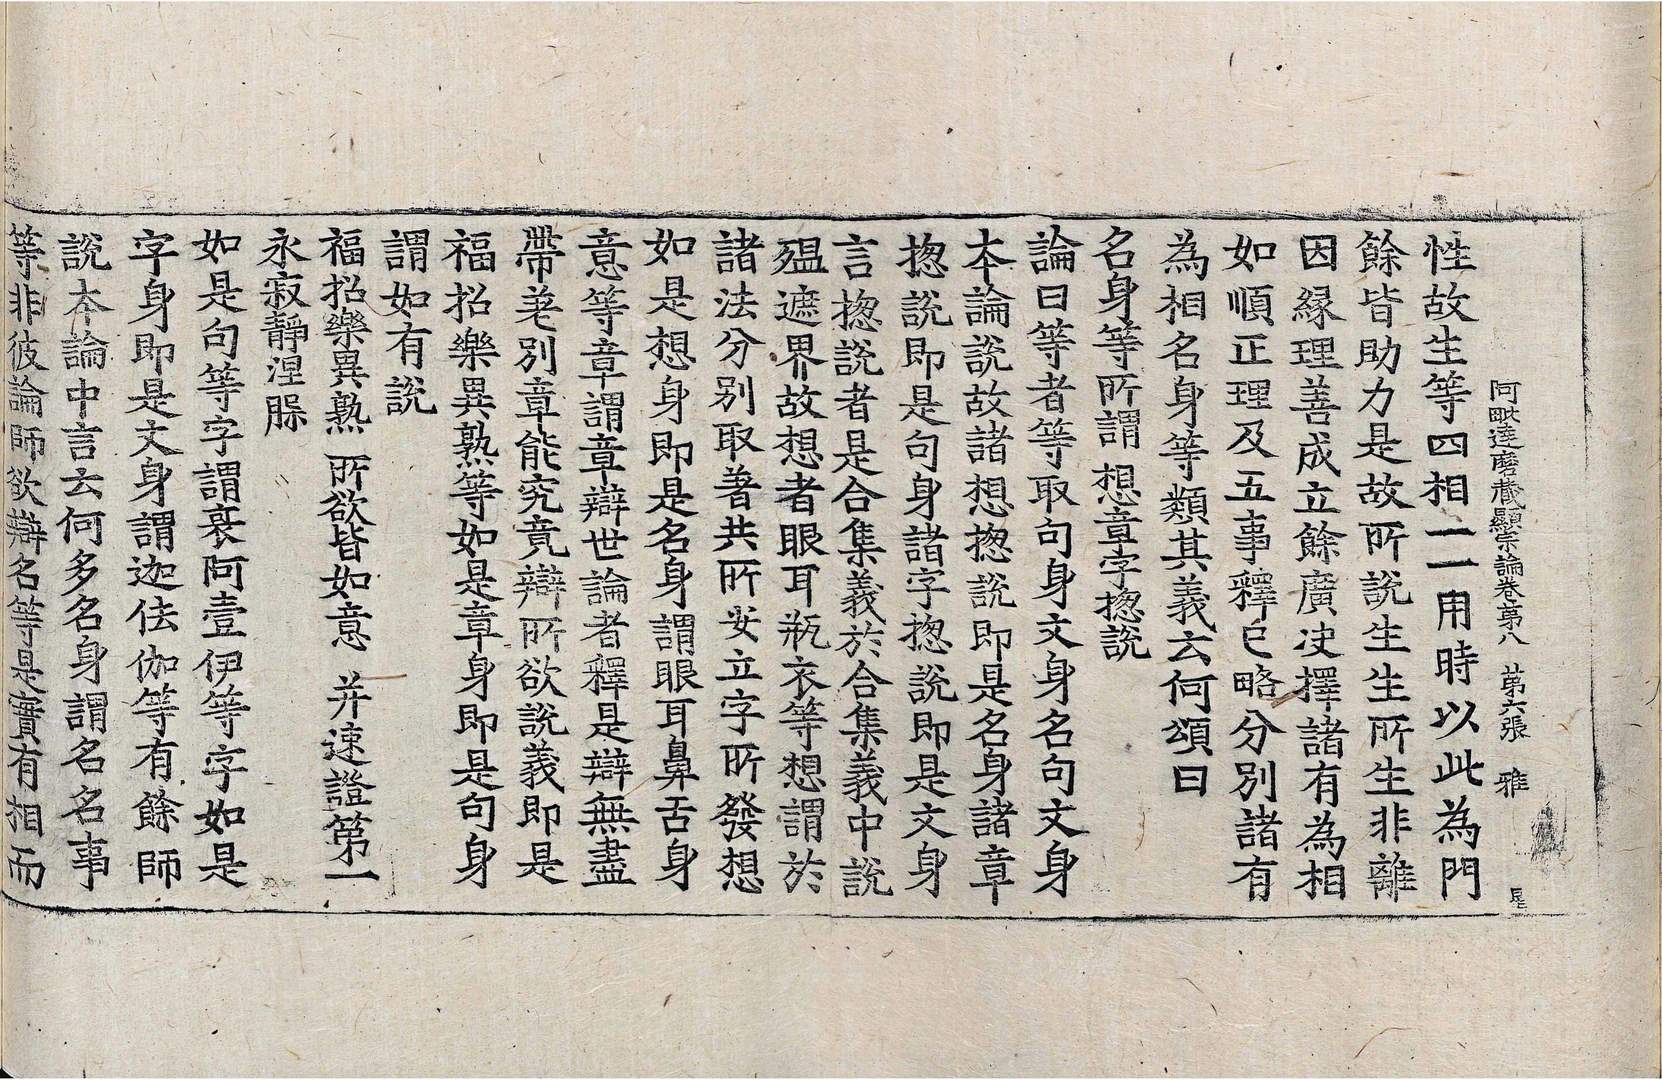 阿毗達磨藏顯宗論卷第八　第六張　雅
性故生等四相一一用時以此為門
餘皆助力是故所說生生所生非離
因緣理善成立餘廣決擇諸有為相
如順正理及五事釋已略分別諸有
為相名身等類其義云何頌曰
名身等所謂　想章字揔說
論曰等者等取句身文身名句文身
本論說故諸想揔說即是名身諸章
揔說即是句身諸字揔說即是文身
言揔說者是合集義於合集義中說
嗢遮界故想者眼耳瓶衣等想謂於
諸法分別取著共所安立字所發想
如是想身即是名身謂眼耳鼻舌身
意等章謂章辯世論者釋是辯無盡
帶差別章能究竟辯所欲說義即是
福招樂異熟等如是章身即是句身
謂如有說
福招樂異熟　所欲皆如意　并速證第一
永寂靜涅槃
如是句等字謂裒阿壹伊等字如是
字身即是文身謂迦佉伽等有餘師
說本論中言云何多名身謂名名事
等非彼論師欲辯名等是實有相而